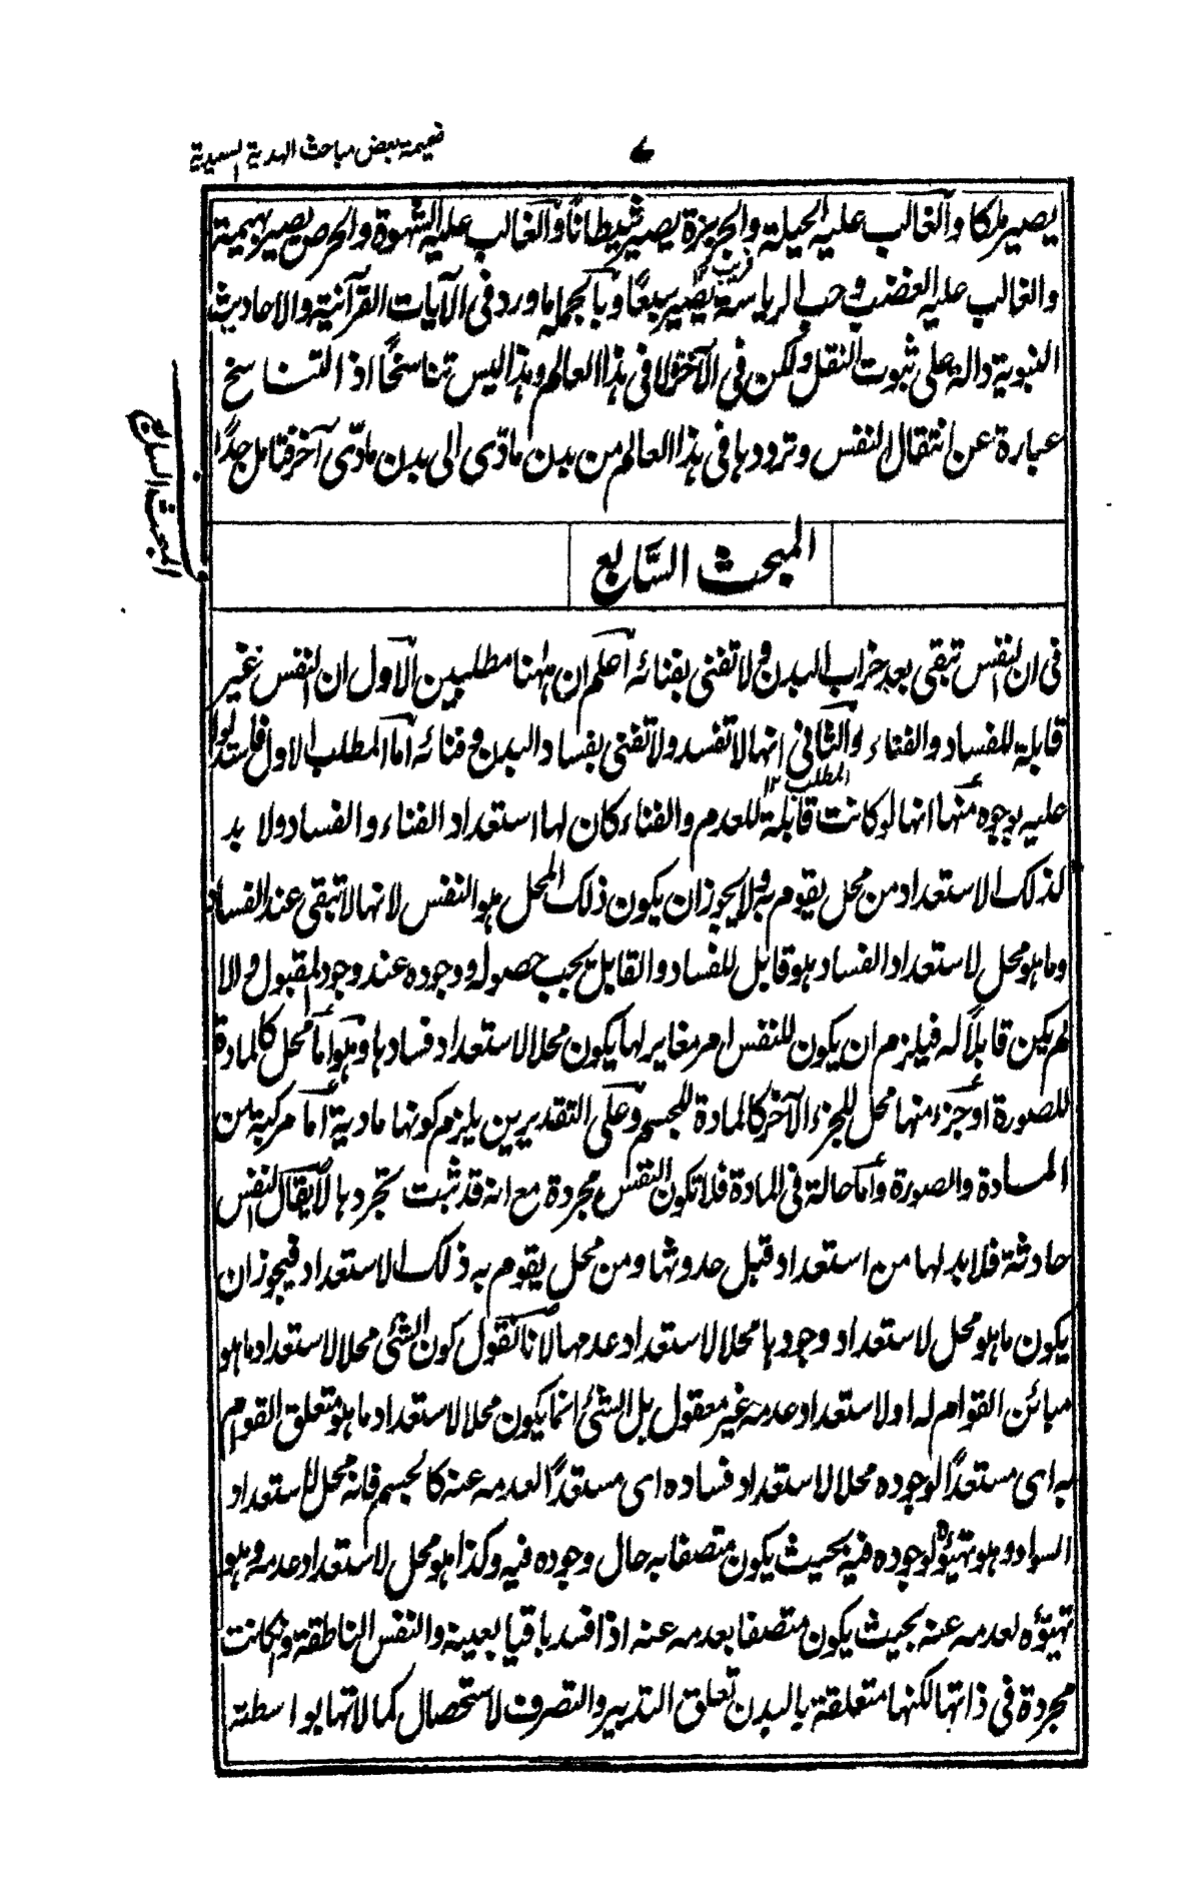 ضميمة بعض مباحث الهدية السعيدية
٧
يصير ملكا والغالب عليه الحيلة والجربزة يصير شيطانًا والغالب عليه الشهوة والحرص يصير بهيمة
والغالب عليه الغضب وحب الرياسة يصير سبعًا وبالجملة ما ورد فى الآيات القرآنية والاحاديث
النبوية دالة على ثبوت النقل ولكن فى الآخرة لا فى هذا العالم وهذا ليس تناسخًا اذ التناسخ
عبارة عن انتقال النفس وترددها فى هذا العالم من بدن مادّى الى بدن مادّى آخر فتامل جدًا
المبحث السابع
المبحث السَّابع
فى ان النفس تبقى بعد خراب البدن ولا تفنى بفنائه اعلم ان ههنا مطلبين الاول ان النفس غير
قابلة للفساد والفناء والثانى انها لا تفسد ولا تفنى بفساد البدن وفنائه اما المطلب الاول فاستدلوا
المطلب ١٢
عليه بوجوه منها انها لو كانت قابلة للعدم والفناء كان لها استعداد الفناء والفساد ولا بد
لذلك الاستعداد من محل يقوم به ولا يجوز ان يكون ذلك المحل هو النفس لانها لا تبقى عند الفساد
وما هو محل لاستعداد الفساد هو قابل للفساد والقابل يجب حصوله ووجوده عند وجود المقبول والا
لم يكن قابلًا له فيلزم ان يكون للنفس امر مغاير لها يكون محلا لاستعداد فسادها وهو اما محل كالمادة
للصورة او جزء منها محل للجزء الآخر كالمادة للجسم وعلى التقديرين يلزم كونها مادية اما مركبة من
المادة والصورة واما حالة فى المادة فلا تكون النفس مجردة مع انه قد ثبت تجردها لا يقال النفس
حادثة فلا بد لها من استعداد قبل حدوثها ومن محل يقوم به ذلك الاستعداد فيجوز ان
يكون ما هو محل لاستعداد وجودها محلا لاستعداد عدمها لانا نقول كون الشئ محلا لاستعداد ما هو
مبائن القوام له او لاستعداد عدمه غير معقول بل الشئ انما يكون محلا لاستعداد ما هو متعلق القوام
به اى مستعدًا لوجوده محلا لاستعداد فساده اى مستعدًا لعدمه عنه كالجسم فانه محل لاستعداد
السواد وهو تهيؤه لوجوده فيه بحيث يكون متصفا به حال وجوده فيه وكذا هو محل لاستعداد عدمه وهو
تهيّؤه لعدمه عنه بحيث يكون متصفا بعدمه عنه اذا فسد باقيا بعينه والنفس الناطقة وان كانت
مجردة فى ذاتها لكنها متعلقة بالبدن تعلق التدبير والتصرف لاستحصال كمالاتها بواسطته